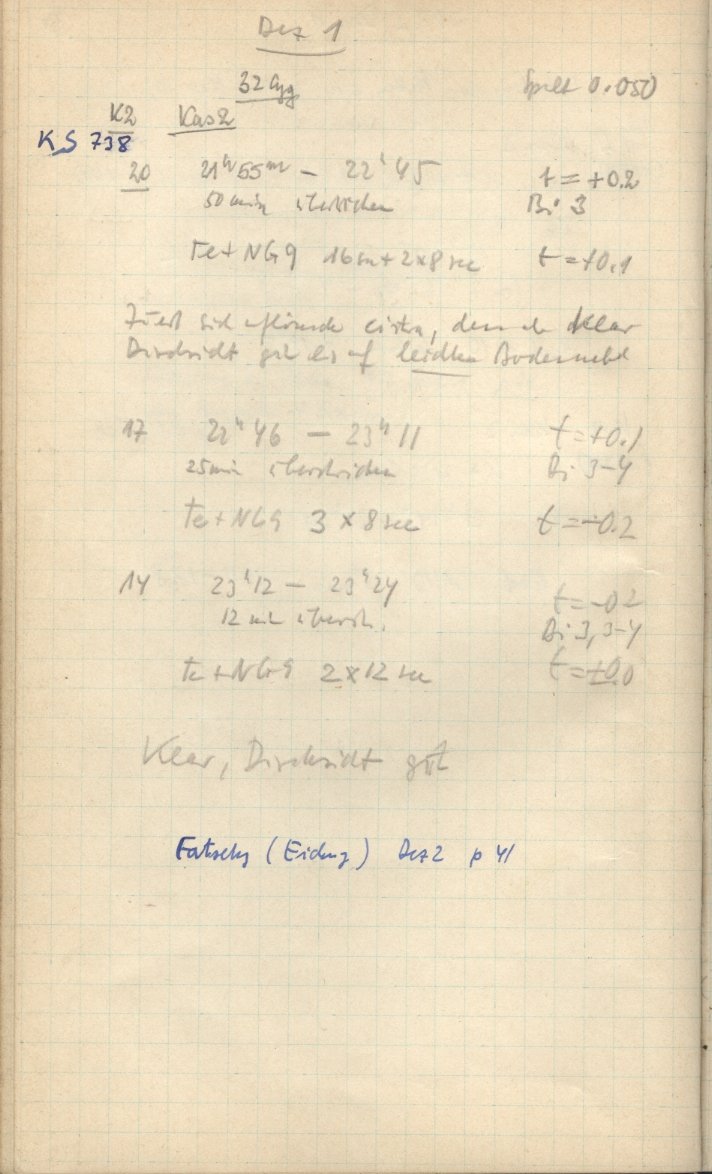 Dez 1
32 Cyg
Spalt 0.050
K2 Kas 2
KS 738
20 21h 55m – 22h 45 t = +0.2
50 min überstrichen Bi 3
Fe + NG9 16 sec + 2×8 sec t = +0.1
Zuerst sich auflösende Cirren, dann Klar
Durchsicht gut bis auf leichten Bodennebel
17 22h 46 – 23h 11 t = +0.1
25 min überstrichen Bi 3-4
Fe + NG9 3 × 8 sec t = -0.2
14 23h 12 – 23h 24 t = -0.2
12 min überstr. Bi 3, 3-4
Fe + NG9 2 × 12 sec t = ±0.0
Klar, Durchsicht gut
(Eichung) Dez 2 p 41